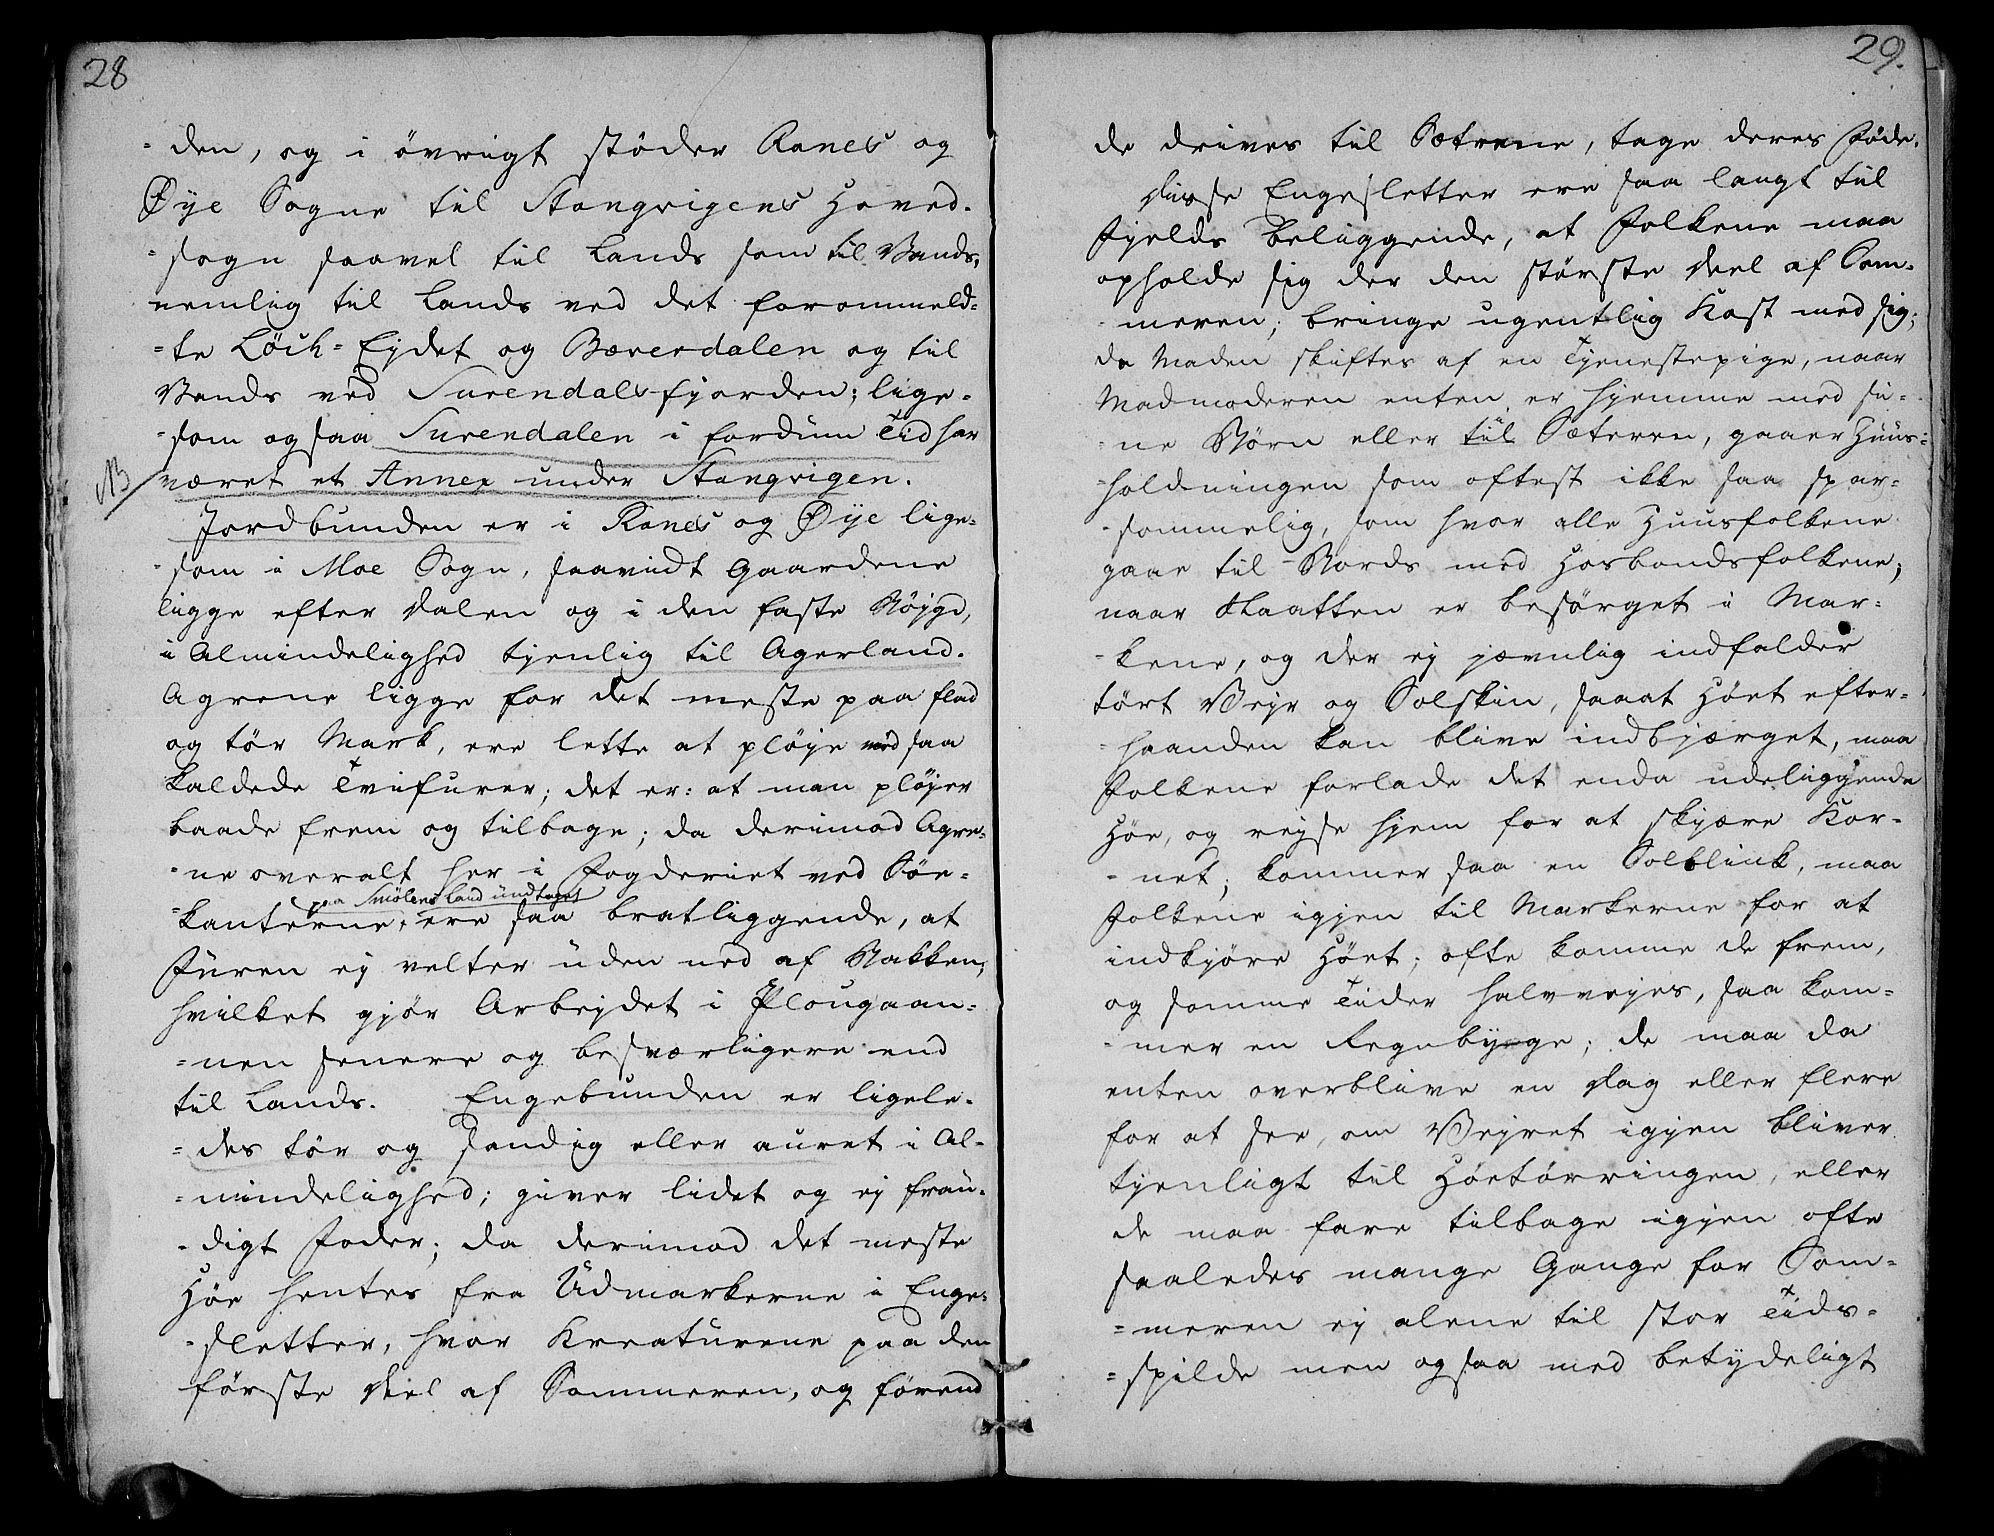 28
-den, og i övrigt støder Ranes og
Øye Sogne til Stangvigens Hoved-
-sogn saavel til Lands som til Vands,
nemlig til Lands ved det forommeld=
=te Löch=Eydet og Bæverdalen og til
Vands ved Surendals-fjorden; lige=
-som og saa Surendalen i fordum Tid har
NB været et Annex under Stangvigen.
Jordbunden er i Ranes og Øye lige=
-som i Moe Sogn, saavidt Gaardene
ligge efter Dalen og i den faste Bøjgd,
i Almindelighed tjenlig til Agerland.
Agrene ligge for det meste paa flad
og tör Mark, ere lette at pløje med saa
kaldede Tvifurer; det er: at man pløjer
baade frem og tilbage; da derimod Agre-
-ne overalt her i Fogderiet ved Söe-
paa Smölens Land undtaget
-kanterne, ere saa bratliggende, at
Furen ej velter uden ned af Bakken,
hvilket gjör Arbejdet i Plougaan=
=nen senere og besværligere end
til Lands. Engebunden er ligele-
=des tör og sandig eller auret i Al-
-mindelighed; giver lidet og ej frau-
-digt Foder; da derimod det meste
Höe hentes fra Udmarkerne i Enge-
-sletter, hvor Kreaturene paa den
förste Deel af Sommeren, og förend
29.
de drives til Sætrene, tage deres Föde.
Disse Engesletter ere saa langt til
Fjelds beliggende, at Folkene maa
opholde sig der den störste Deel af Som-
-meren; bringe ugentlig Kost med sig;
da Maden skiftes af en Tjenestepige, naar
Madmoderen enten er hjemme med si-
-ne Börn eller til Sæteren, gaaer Huus=
-holdningen som oftest ikke saa spar=
-sommelig, som hvor alle Huusfolkene
gaae til Bords med Hosbondsfolkene;
naar Slaatten er besörget i Mar=
-kene, og der ej jævnlig indfalder
tört Vejr og Solskin, saaat Höet efter-
-haanden kan blive indbjærget, maa
Folkene forlade det enda udeliggende
Höe, og rejse hjem for at skjære Kor-
-net; kommer saa en Solblink, maa
Folkene igjen til Markerne for at
indkjöre Höet; ofte komme de frem,
og somme Tider halvvejes, saa kom=
-mer en Regnbyge; de maa da
enten overblive en Dag eller flere
for at see, om Vejret igjen bliver
tjenligt til Höetörringen, eller
de maa fare tilbage igjen ofte
saaledes mange Gange for Som=
=meren ej alene til stor Tids=
=spilde men og saa med betydeligt